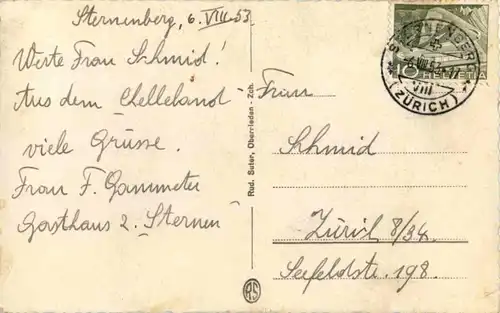 Sternenberg, 6. VIII. 53
Werte Frau Schmid!
Aus dem Chelleland
viele Grüsse.
Frau F. Gammeter
Gasthaus z. Sternen
Rud. Suter, Oberrieden - Zch.
RS
Frau
Schmid
Zürich 8/34
Seefeldstr. 198.
STERNENBERG
(ZÜRICH)
VIII
10 HELVETIA